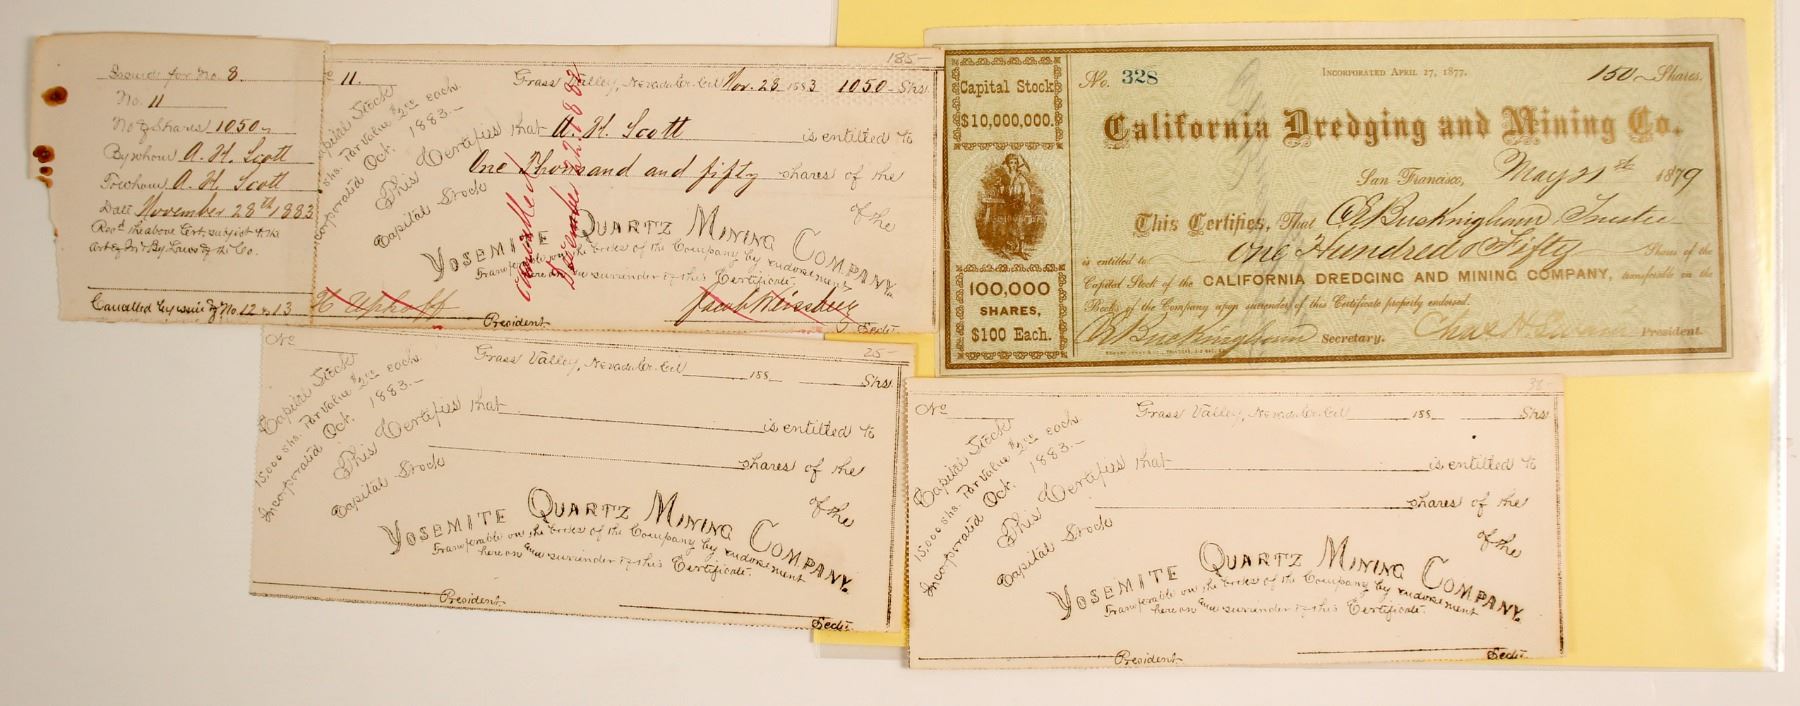 Issued for No. 8.
No. 11
No of Shares 1050
By whom A. H. Scott
To whom A. H. Scott
Date November 28th 1883
Recd the above Cert. subject to the
Art of In & By Laws of the Co.
Cancelled by issue of No. 12 & 13
185-
11.
Grass Valley, Nevada Co. Cal Nov. 28 1883 1050 Shs
Capital Stock
shs. Par Value $2.00 each.
Incorporated Oct. 1883.-
This Certifies that A. H. Scott is entitled to
One Thousand and fifty shares of the
Capital Stock of the
YOSEMITE QUARTZ MINING COMPANY.
Transferable on the books of the Company by endorsement
hereon and surrender of this Certificate.
Cancelled
December 22 1883
President
Sect.
No. 328
INCORPORATED APRIL 17, 1877.
150 Shares.
Capital Stock
$10,000,000.
California Dredging and Mining Co.
San Francisco, May 21st 1879
This Certifies, That C E Buckingham Trustee
is entitled to One Hundred & Fifty Shares of the
Capital Stock of the CALIFORNIA DREDGING AND MINING COMPANY, transferable on the
Books of the Company upon surrender of this Certificate properly endorsed.
100,000
SHARES,
$100 Each.
Buckingham Secretary.
Chas H. President
No
25-
Grass Valley, Nevada Co. Cal 188 Shs.
Capital Stock
15.000 shs. Par Value $2.00 each.
Incorporated Oct. 1883.-
This Certifies that is entitled to
shares of the
Capital Stock of the
YOSEMITE QUARTZ MINING COMPANY.
Transferable on the books of the Company by endorsement
hereon and surrender of this Certificate.
President
Sect.
38-
No
Grass Valley, Nevada Co. Cal 188 Shs
Capital Stock
15.000 shs. Par Value $2.00 each.
Incorporated Oct. 1883.-
This Certifies that is entitled to
shares of the
Capital Stock of the
YOSEMITE QUARTZ MINING COMPANY.
Transferable on the books of the Company by endorsement
hereon and surrender of this Certificate.
President
Sect.